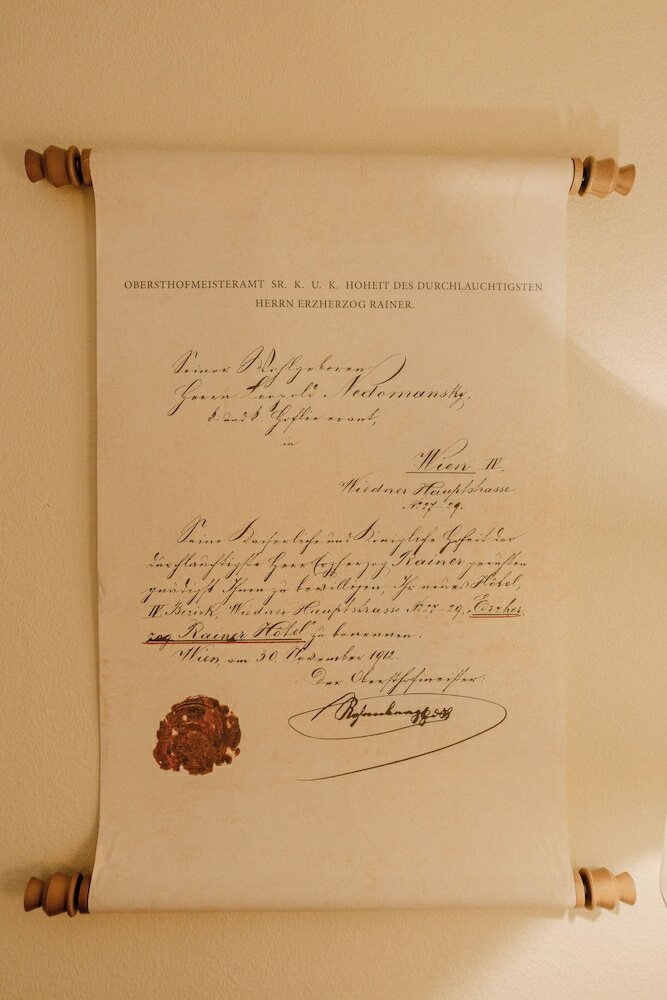 OBERSTHOFMEISTERAMT SR. K. U. K. HOHEIT DES DURCHLAUCHTIGSTEN
HERRN ERZHERZOG RAINER.
Seiner Wohlgeboren
Herrn Leopold Nedomansky,
k. und k. Hoflieferant,
in
Wien IV,
Wiedner Hauptstrasse
No 27-29.
Seine Kaiserliche und Königliche Hoheit der
durchlauchtigste Herr Erzherzog Rainer geruhten
gnädigst Ihnen zu bewilligen, Ihr neues Hôtel,
IV. Bezirk, Wiedner Hauptstrasse No 27-29, „Erzher
zog Rainer Hôtel" zu benennen.
Wien, am 30. November 1912.
Der Obersthofmeister: